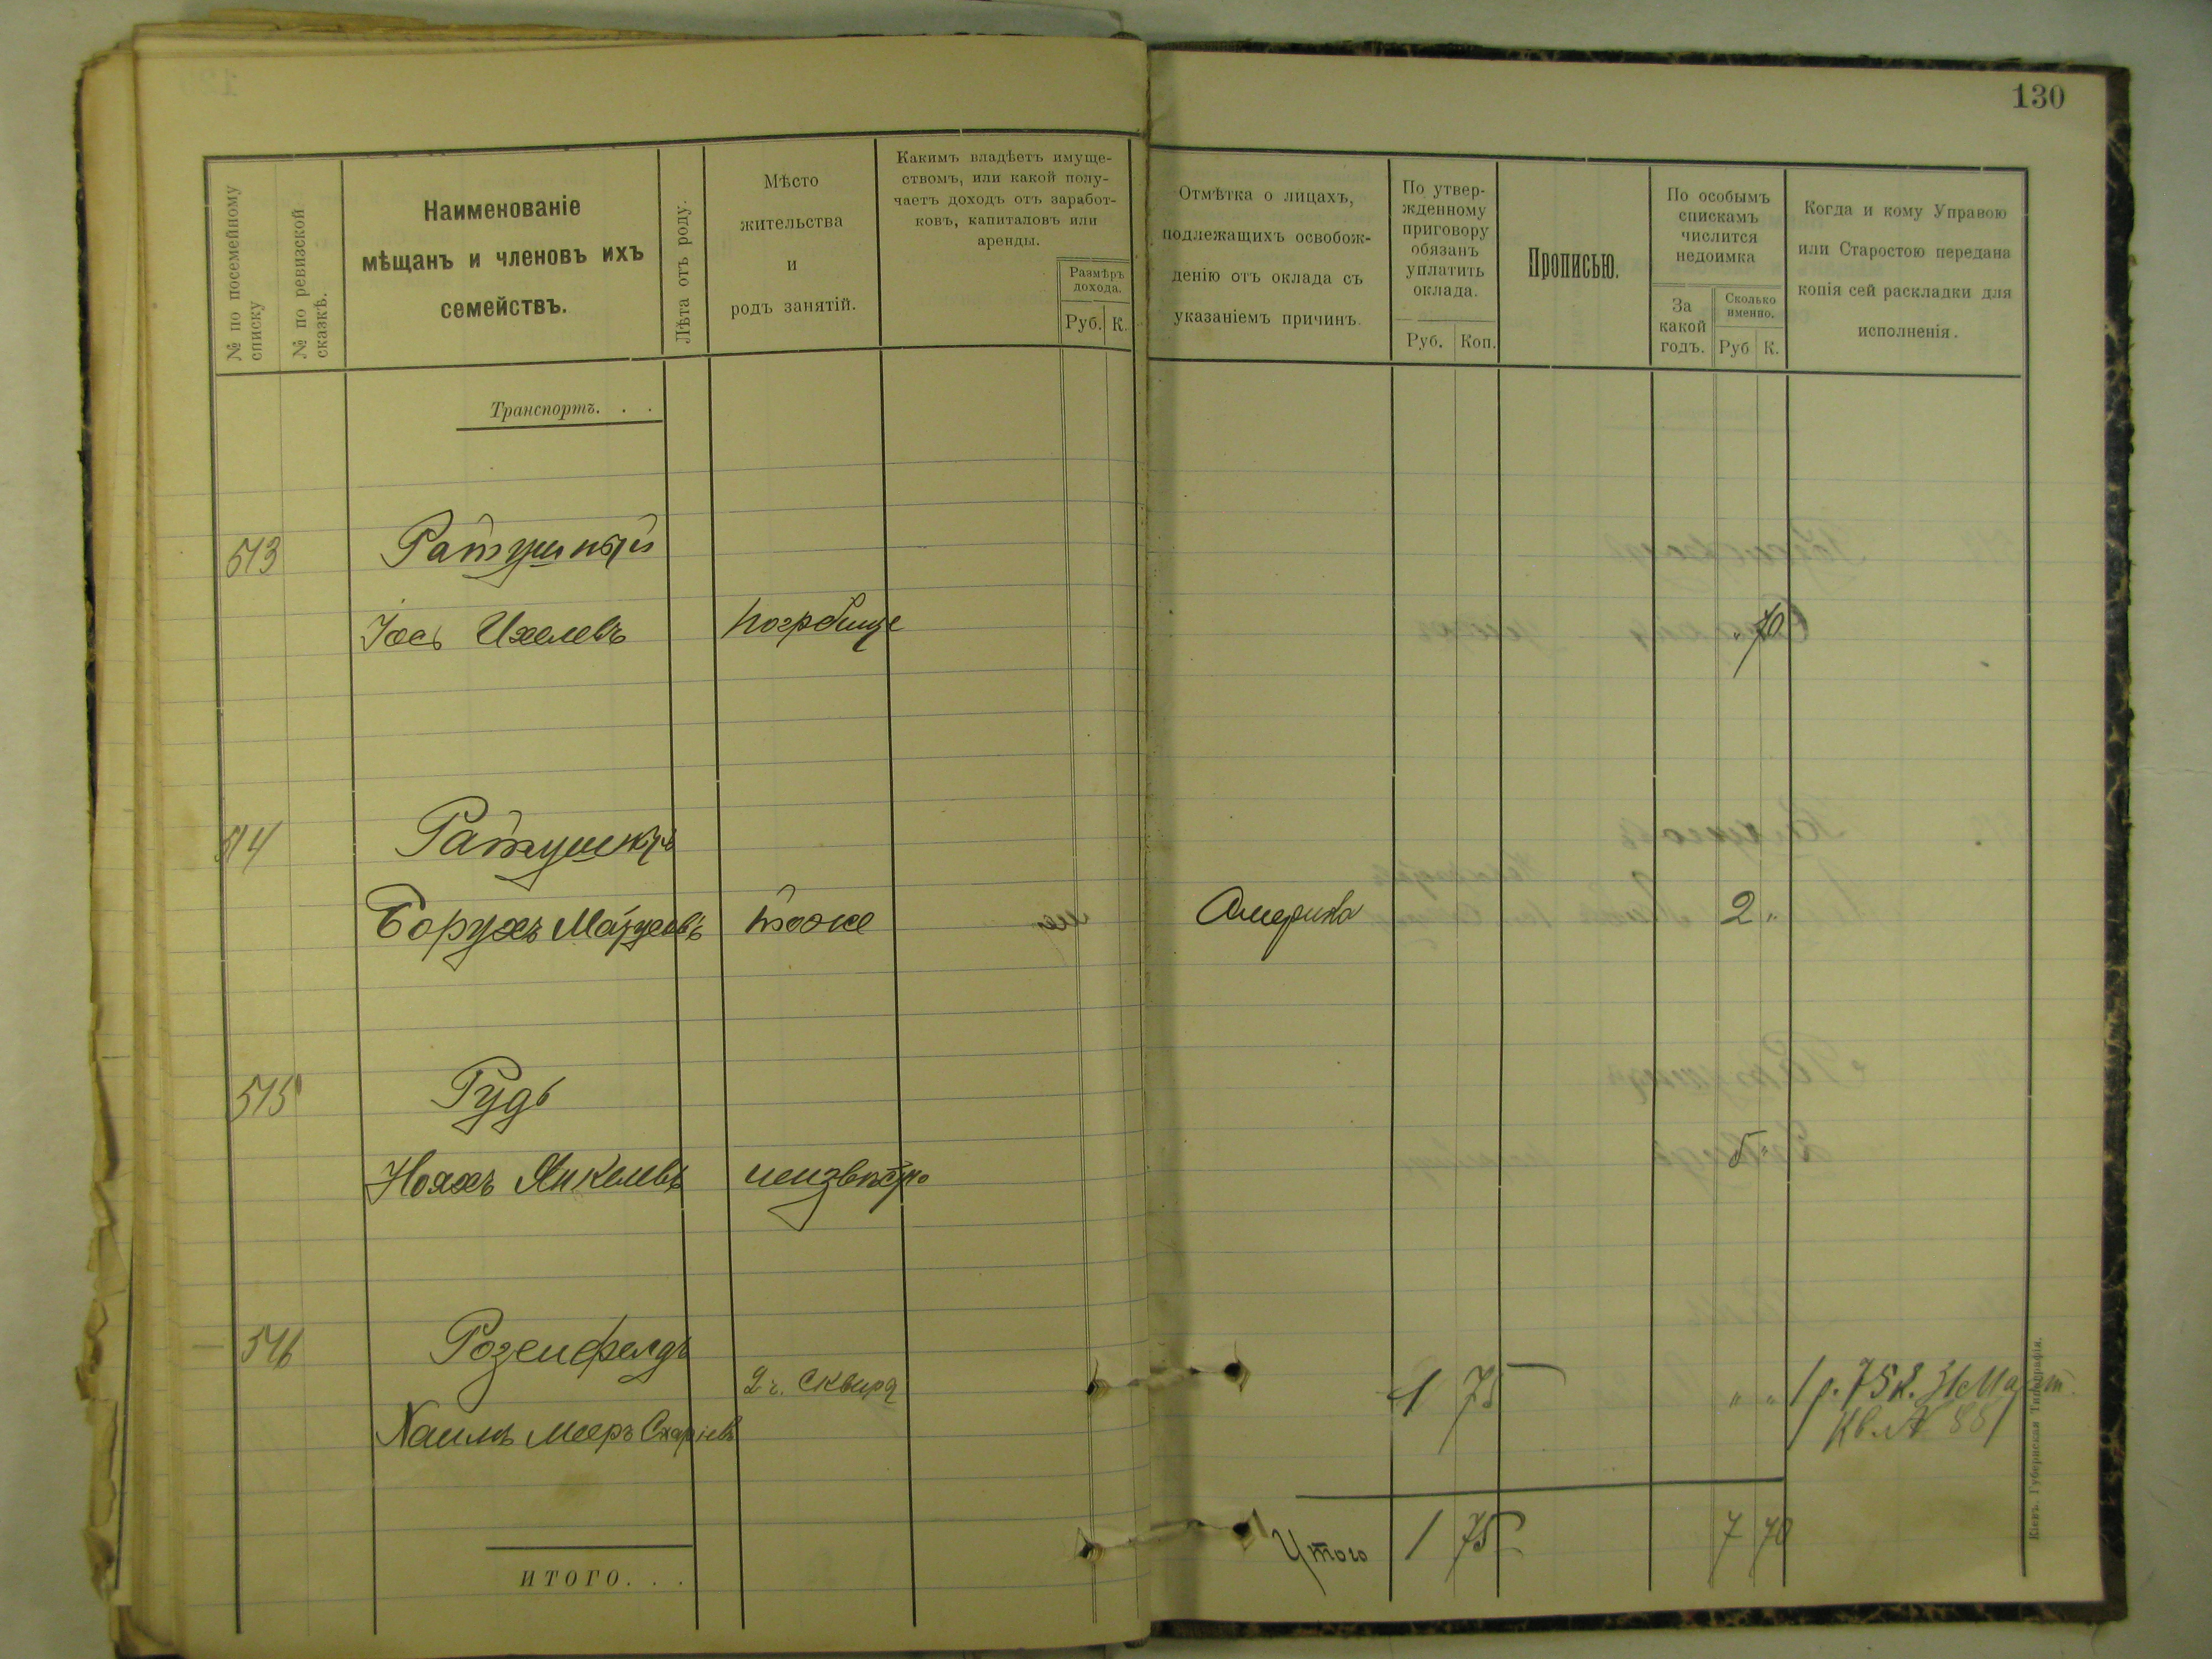 130
№ по посемейному списку
№ по ревизской сказкѣ.
Наименованіе
мѣщанъ и членовъ ихъ
семействъ.
Лѣта отъ роду.
Мѣсто
жительства
и
родъ занятій.
Какимъ владѣетъ имуще-
ствомъ, или какой полу-
чаетъ доходъ отъ заработ-
ковъ, капиталовъ или
аренды.
Размѣръ
дохода.
Руб. К.
Отмѣтка о лицахъ,
подлежащихъ освобож-
денію отъ оклада съ
указаніемъ причинъ.
По утвер-
жденному
приговору
обязанъ
уплатить
оклада.
Руб. Коп.
Прописью.
По особымъ
спискамъ
числится
недоимка
За
какой
годъ.
Сколько
именно.
Руб К.
Когда и кому Управою
или Старостою передана
копія сей раскладки для
исполненія.
Транспортъ. . .
513 Ратушный
Іось Ихелевъ Погребище " 70
514 Ратушный
Борухъ Матусовъ тоже Америка 2 "
515 Рудь
Нояхъ Янкелевъ неизвѣстно 5 "
516 Розенфелдъ
2 г. Сквира 1 75 " " 1 р. 75 к. 31 Март.
Хаимъ Мееръ Кв. № 881
Итого 1 75 7 70
ИТОГО. . .
Кіевъ. Губернская Типографія.